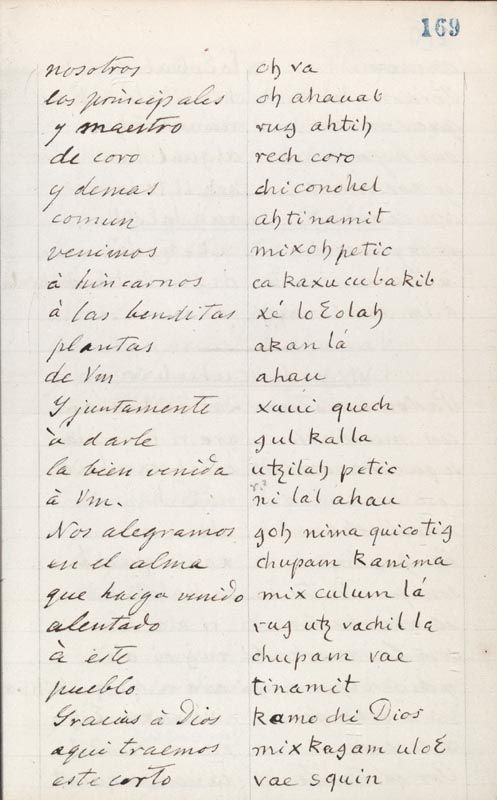 169
nosotros oh va
los principales oh ahauab
y maestro rug ahtih
de coro rech coro
y demas chiconohel
comun ahtinamit
venimos mixoh petic
à hincarnos ca kaxucubakib
à las benditas xé loƐolah
plantas akan lá
de Vm ahau
Y juntamente xaui quech
à darle gul kalla
la bien venida utzilah petic
à Vm. ri lal ahau
Nos alegramos goh nima quicotig
en el alma chupam kanima
que haiga venido mix culum lá
alentado rug utz vachil la
à este chupam vae
pueblo tinamit
Gracias à Dios kamo chi Dios
aqui traemos mix kagam uloƐ
este corto vae squin